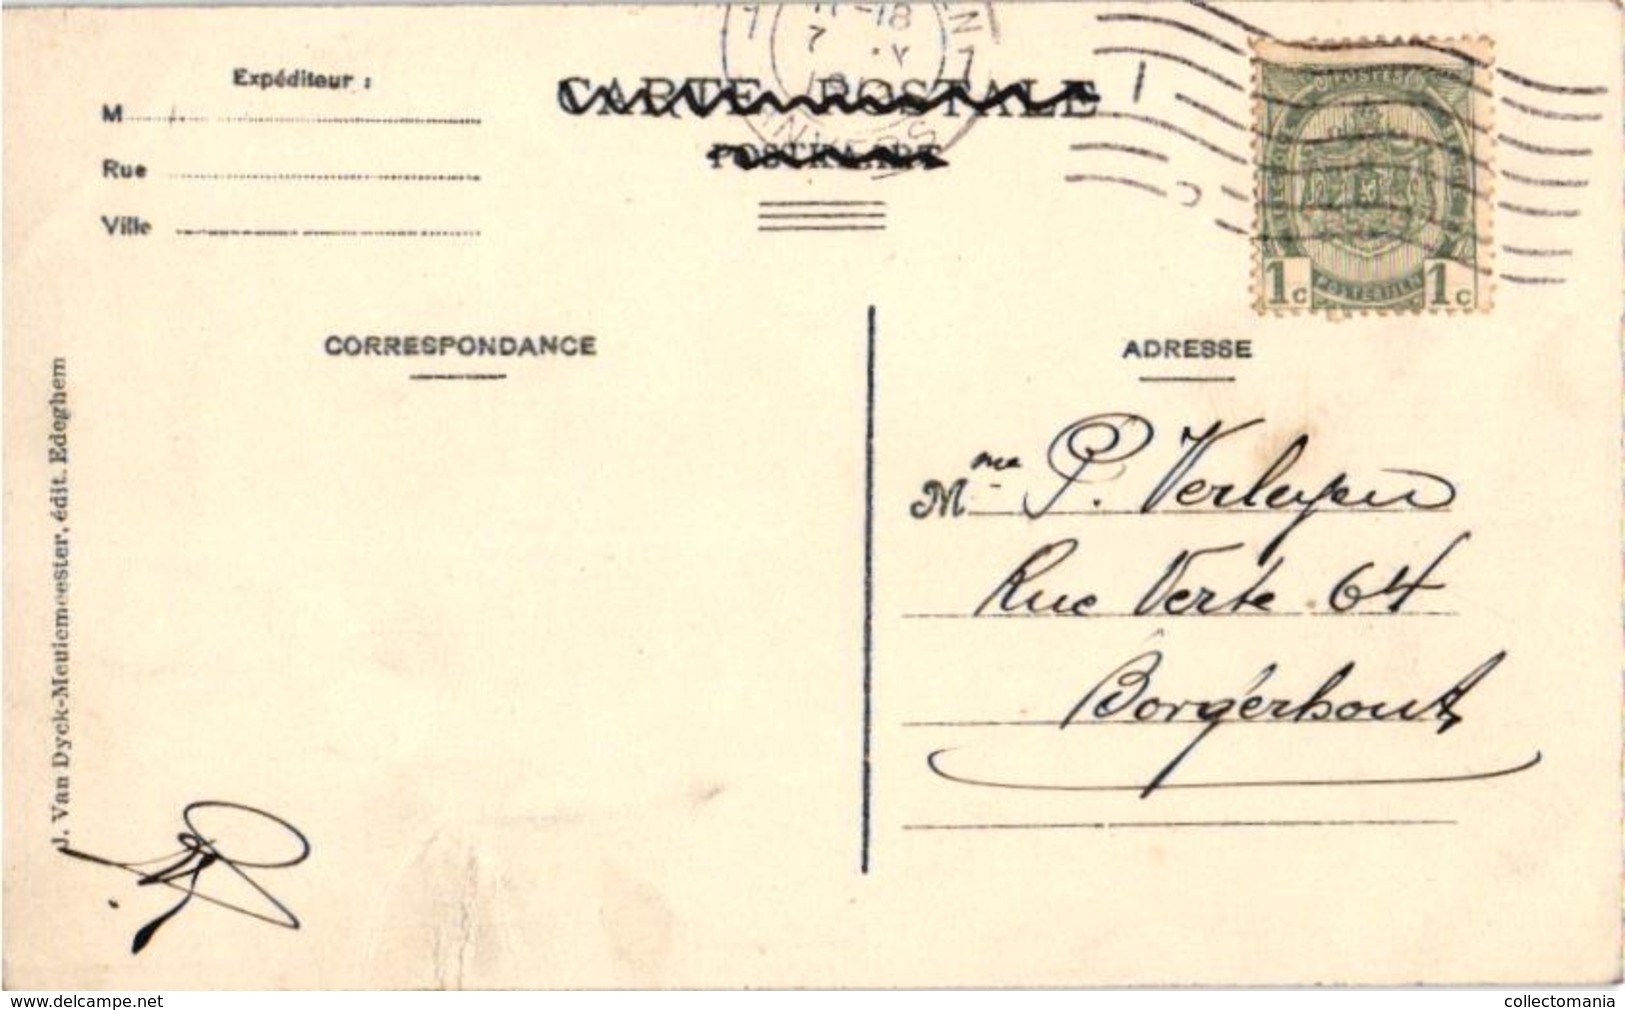 Expéditeur :
M
Rue
Ville
CARTE POSTALE
POSTKAART
11-18
7
ANVERS
POSTES
1c POSTERIJEN 1c
CORRESPONDANCE
ADRESSE
Mme P. Verleyen
Rue Verte 64
Borgerhout
J. Van Dyck-Meulemeester, édit. Edeghem
www.delcampe.net
collectomania